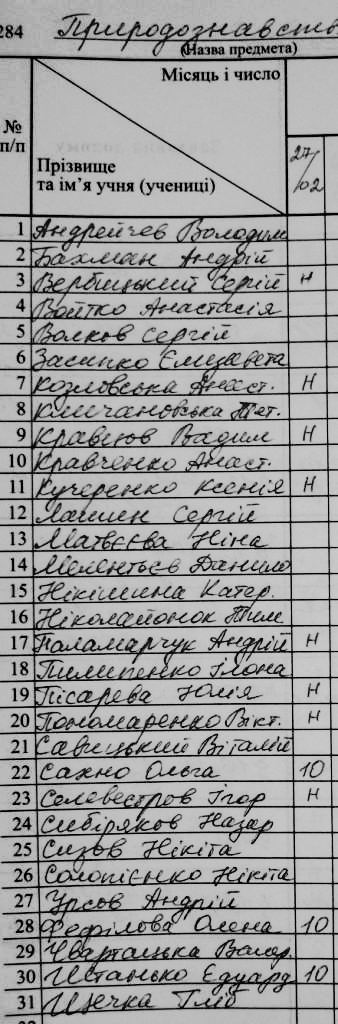 284 Природознавств
(Назва предмета)
Місяць і число
№
п/п
Прізвище
та ім’я учня (учениці)
27/02
1 Андрейчев Володим
2 Бахман Андрій
3 Вербицький Сергій н
4 Войтко Анастасія
5 Волков Сергій
6 Засипко Єлизавета
7 Козловська Анаст. н
8 Климчановська Тет.
9 Кравцов Вадим н
10 Кравченко Анаст.
11 Кучеренко Ксенія н
12 Сергій
13 Матвєєва Ніна
14 Мелентьєв Данило
15 Нікішина Катер.
16 Ніколайонок Тим
17 Паламарчук Андрій н
18 Пилипенко Ілона
19 Пісарева Юлія н
20 Пономаренко Вікт. н
21 Савицький Віталій
22 Сахно Ольга 10
23 Селевестров Ігор н
24 Сибіряков Назар
25 Сизов Нікіта
26 Солопієнко Нікіта
27 Урсов Андрій
28 Фефілова Олена 10
29 Чвартацька Валер.
30 Едуард 10
31 Щечка Гліб